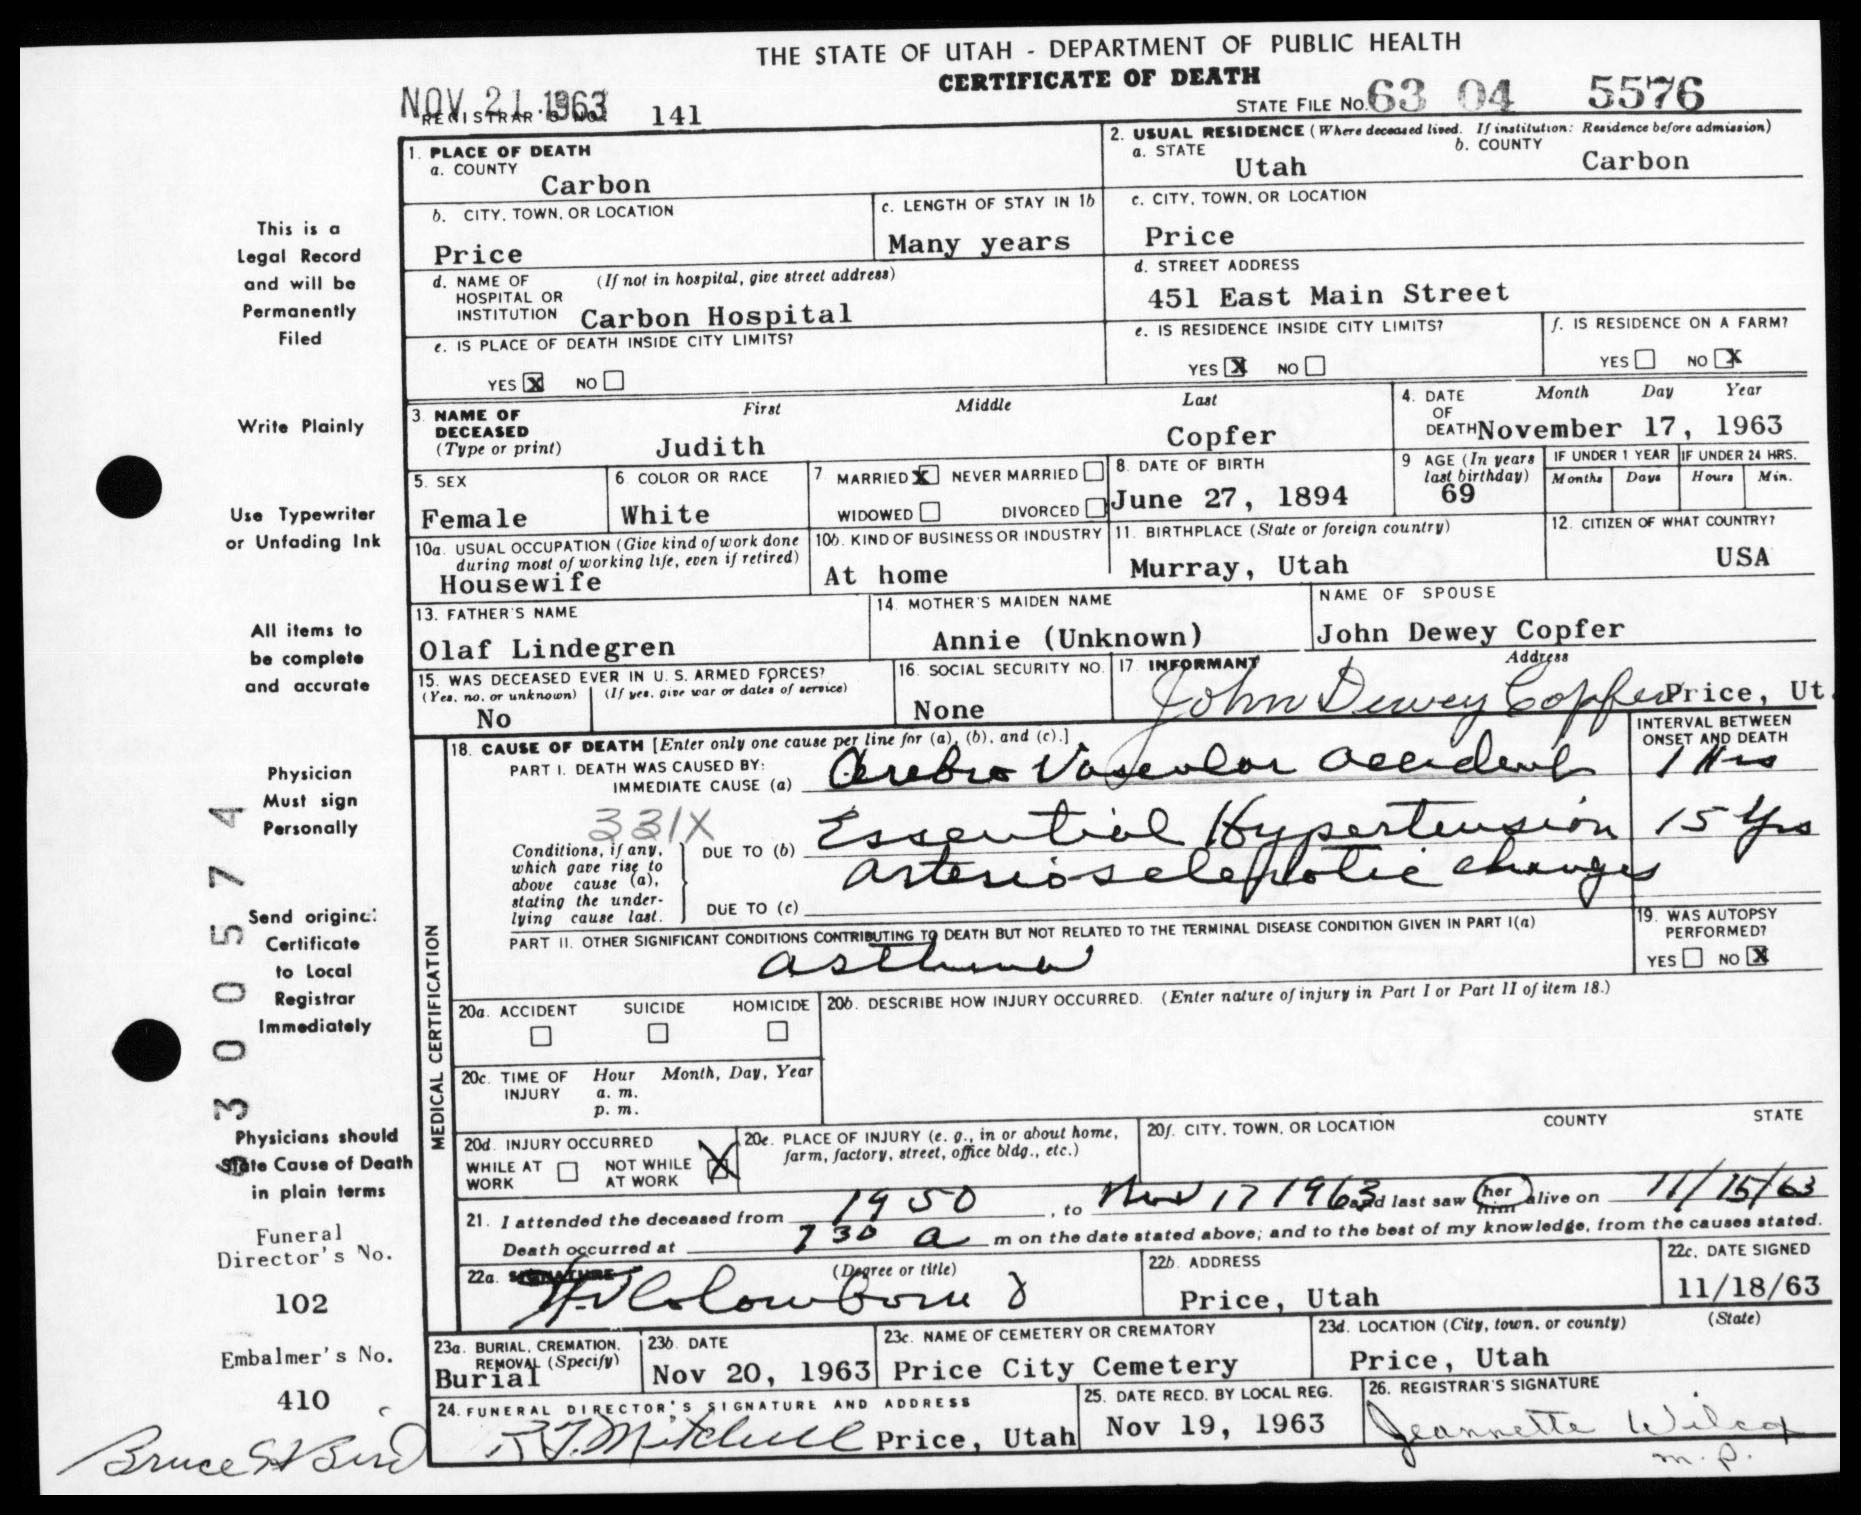 THE STATE OF UTAH - DEPARTMENT OF PUBLIC HEALTH
CERTIFICATE OF DEATH
NOV 21 1963
REGISTRAR'S NO. 141
STATE FILE NO. 63 04 5576
1. PLACE OF DEATH
a. COUNTY
Carbon
2. USUAL RESIDENCE (Where deceased lived. If institution: Residence before admission)
a. STATE
Utah
b. COUNTY
Carbon
b. CITY, TOWN, OR LOCATION
Price
c. LENGTH OF STAY IN 1b
Many years
c. CITY, TOWN, OR LOCATION
Price
d. NAME OF HOSPITAL OR INSTITUTION
(If not in hospital, give street address)
Carbon Hospital
d. STREET ADDRESS
451 East Main Street
e. IS PLACE OF DEATH INSIDE CITY LIMITS?
YES X NO
e. IS RESIDENCE INSIDE CITY LIMITS?
YES X NO
f. IS RESIDENCE ON A FARM?
YES NO X
3. NAME OF DECEASED (Type or print)
First Middle Last
Judith Copfer
4. DATE OF DEATH
Month Day Year
November 17, 1963
5. SEX
Female
6. COLOR OR RACE
White
7. MARRIED X NEVER MARRIED
WIDOWED DIVORCED
8. DATE OF BIRTH
June 27, 1894
9 AGE (In years last birthday)
69
IF UNDER 1 YEAR
Months Days
IF UNDER 24 HRS.
Hours Min.
10a. USUAL OCCUPATION (Give kind of work done during most of working life, even if retired)
Housewife
10b. KIND OF BUSINESS OR INDUSTRY
At home
11. BIRTHPLACE (State or foreign country)
Murray, Utah
12. CITIZEN OF WHAT COUNTRY?
USA
13. FATHER'S NAME
Olaf Lindegren
14. MOTHER'S MAIDEN NAME
Annie (Unknown)
NAME OF SPOUSE
John Dewey Copfer
15. WAS DECEASED EVER IN U. S. ARMED FORCES?
(Yes, no, or unknown) (If yes, give war or dates of service)
No
16. SOCIAL SECURITY NO.
None
17. INFORMANT
Address
John Dewey Copfer Price, Ut.
18. CAUSE OF DEATH [Enter only one cause per line for (a), (b), and (c).]
INTERVAL BETWEEN ONSET AND DEATH
PART I. DEATH WAS CAUSED BY:
IMMEDIATE CAUSE (a)
Cerebro Vascular accident 1 Hrs
331X
Conditions, if any, which gave rise to above cause (a), stating the underlying cause last.
DUE TO (b)
Essential Hypertension 15 Yrs
arteriosclerotic changes
DUE TO (c)
PART II. OTHER SIGNIFICANT CONDITIONS CONTRIBUTING TO DEATH BUT NOT RELATED TO THE TERMINAL DISEASE CONDITION GIVEN IN PART I(a)
asthma
19. WAS AUTOPSY PERFORMED?
YES NO X
MEDICAL CERTIFICATION
20a. ACCIDENT SUICIDE HOMICIDE
20b. DESCRIBE HOW INJURY OCCURRED. (Enter nature of injury in Part I or Part II of item 18.)
20c. TIME OF INJURY
Hour Month, Day, Year
a. m.
p. m.
20d. INJURY OCCURRED
WHILE AT WORK NOT WHILE AT WORK X
20e. PLACE OF INJURY (e. g., in or about home, farm, factory, street, office bldg., etc.)
20f. CITY, TOWN, OR LOCATION COUNTY STATE
21. I attended the deceased from 1950, to Nov 17 1963 and last saw her him alive on 11/15/63
Death occurred at 7 30 a m on the date stated above; and to the best of my knowledge, from the causes stated.
22a. SIGNATURE (Degree or title)
22b. ADDRESS
Price, Utah
22c. DATE SIGNED
11/18/63
23a. BURIAL, CREMATION, REMOVAL (Specify)
Burial
23b. DATE
Nov 20, 1963
23c. NAME OF CEMETERY OR CREMATORY
Price City Cemetery
23d. LOCATION (City, town, or county) (State)
Price, Utah
24. FUNERAL DIRECTOR'S SIGNATURE AND ADDRESS
Mitchell Price, Utah
25. DATE RECD. BY LOCAL REG.
Nov 19, 1963
26. REGISTRAR'S SIGNATURE
Jeannette Wilcox
m.p.
This is a
Legal Record
and will be
Permanently
Filed
Write Plainly
Use Typewriter
or Unfading Ink
All items to
be complete
and accurate
Physician
Must sign
Personally
Send original
Certificate
to Local
Registrar
Immediately
Physicians should
State Cause of Death
in plain terms
Funeral
Director's No.
102
Embalmer's No.
410
Bruce Bird